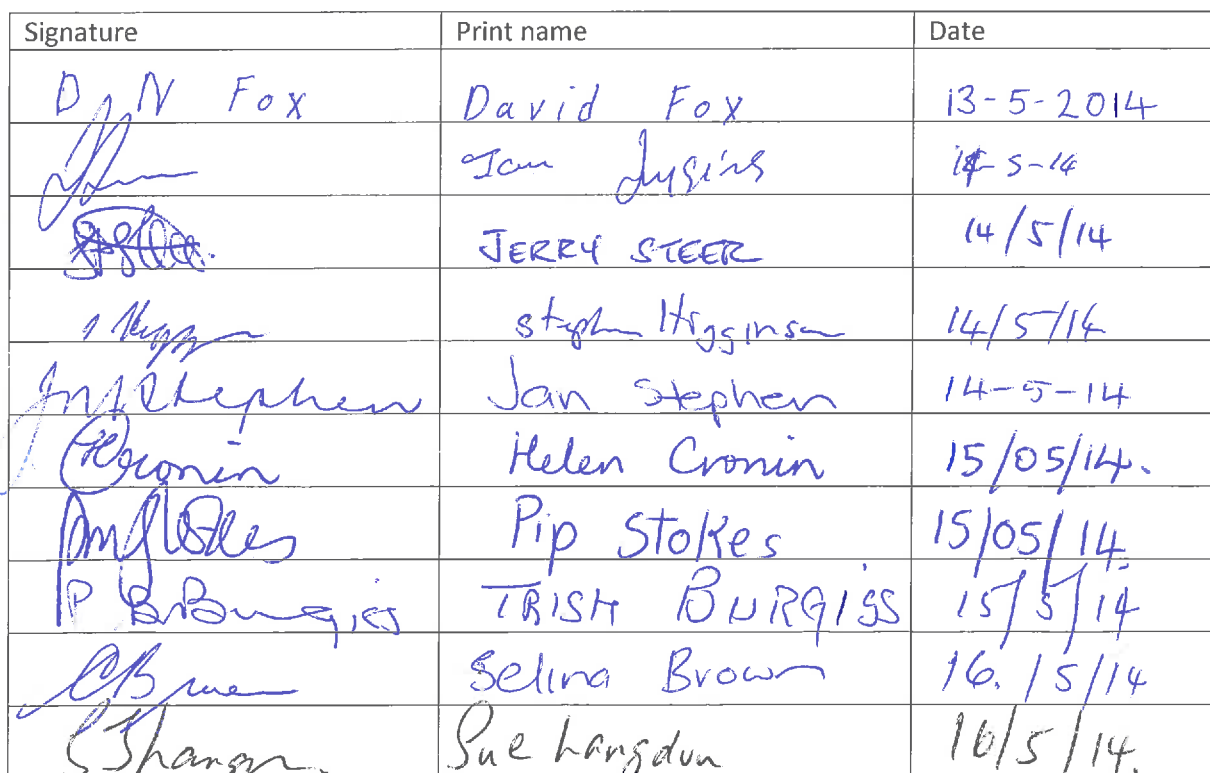 Signature Print name Date
D N Fox David Fox 13-5-2014
14-5-14
JERRY STEER 14/5/14
Stephen Higginson 14/5/14
Stephen Jan Stephen 14-5-14
Cronin Helen Cronin 15/05/14.
Pip Stokes 15/05/14.
P B Burgiss TRISH BURGISS 15/5/14
Selina Brown 16./5/14
Sue Langdun 16/5/14.